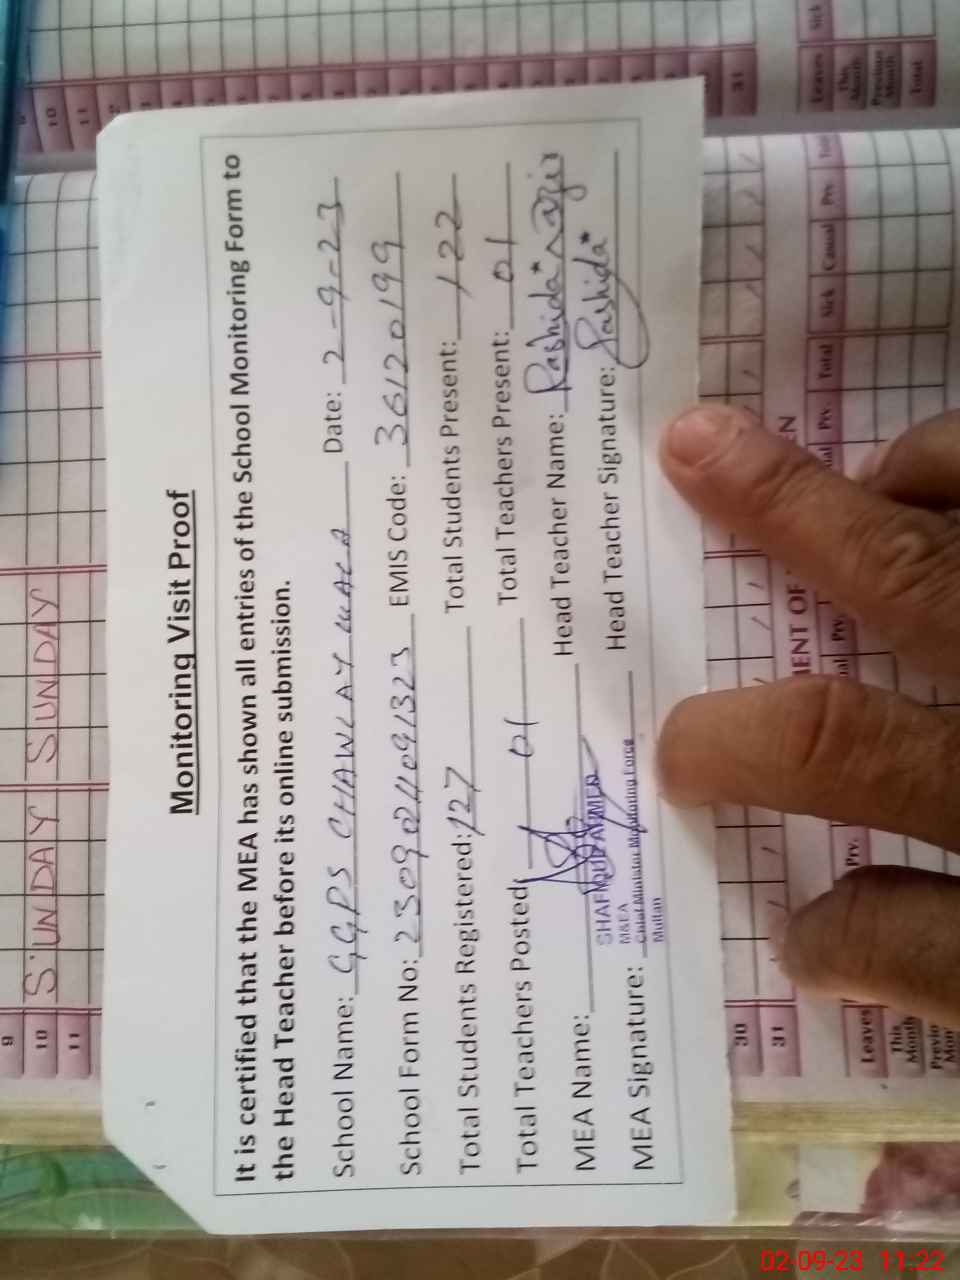 Monitoring Visit Proof
It is certified that the MEA has shown all entries of the School Monitoring Form to
the Head Teacher before its online submission.
School Name: GGPS CHAWLAY WALA Date: 2-9-23
School Form No: EMIS Code: 36120199
Total Students Registered: 127 Total Students Present: 122
Total Teachers Posted: 01 Total Teachers Present: 01
MEA Name: Head Teacher Name: Rashida Nazir
MEA Signature: Head Teacher Signature: Rashida
SHAFIQUE AHMED
M&EA
Chief Minister Monitoring Force
Multan
9
10 SUNDAY SUNDAY
11
30
31
Leaves
This
Month
Sick
Leaves
This
Month
Previous
Month
Total
Prv. Total Sick Casual Prv. Total
31
10
11
02-09-23 11:22